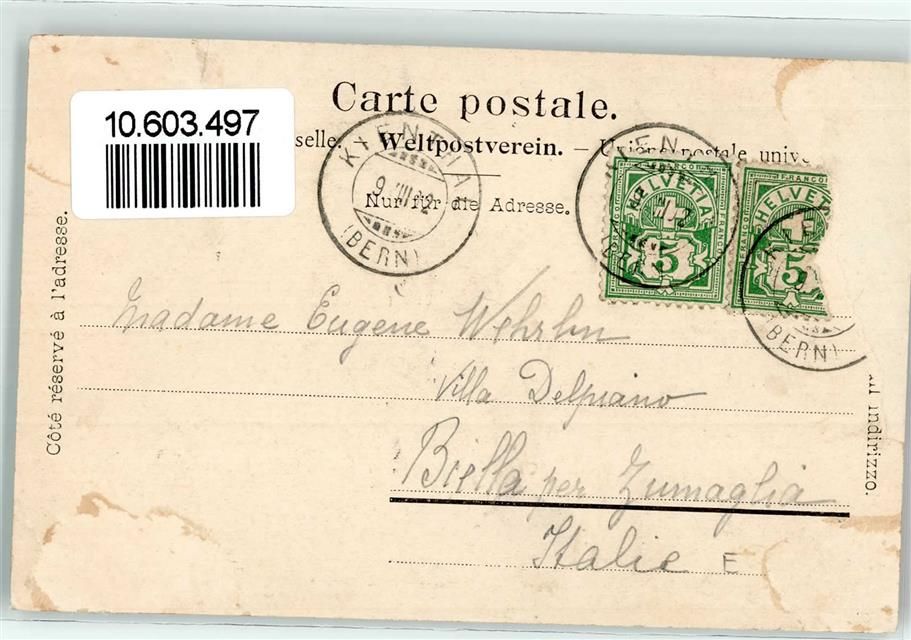 Carte postale.
10.603.497
selle. Weltpostverein. – Union postale unive
Nur für die Adresse.
KIENTHAL
9.VIII.02
(BERN)
FRANCO
HELVETIA
5
FRANCO
HELVET
5
(BERN)
Côté réservé à l'adresse.
indirizzo.
Madame Eugene Wehrlin
Villa Delpiano
Biella per Zumaglia
Italie E